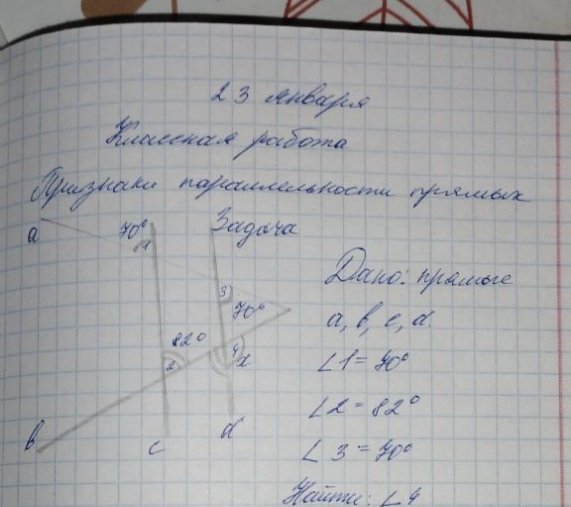 23 января
Классная работа
Признаки параллельности прямых
Задача
a
70°
1
3
70°
82°
2
4
x
b
c
d
Дано: прямые
a, b, c, d.
∠1=70°
∠2=82°
∠3=70°
Найти: ∠4